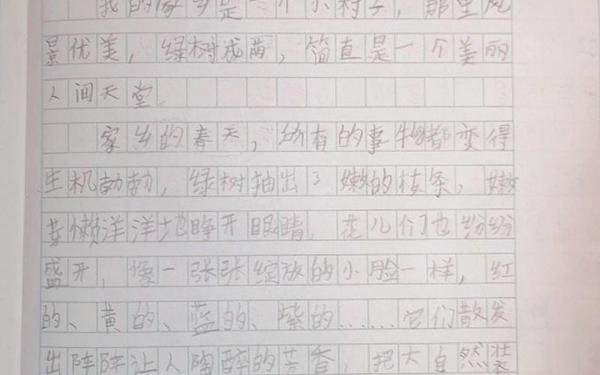 我的家乡是一个小村子，那里风
景优美，绿树成荫，简直是一个美丽
人间天堂
家乡的春天，所有的事物都变得
生机勃勃，绿树抽出了嫩的枝条，嫩
芽懒洋洋地睁开眼睛，花儿们也纷纷
盛开，像一张张绽放的小脸一样，红
的、黄的、蓝的、紫的……它们散发
出阵阵让人陶醉的芳香，把大自然装